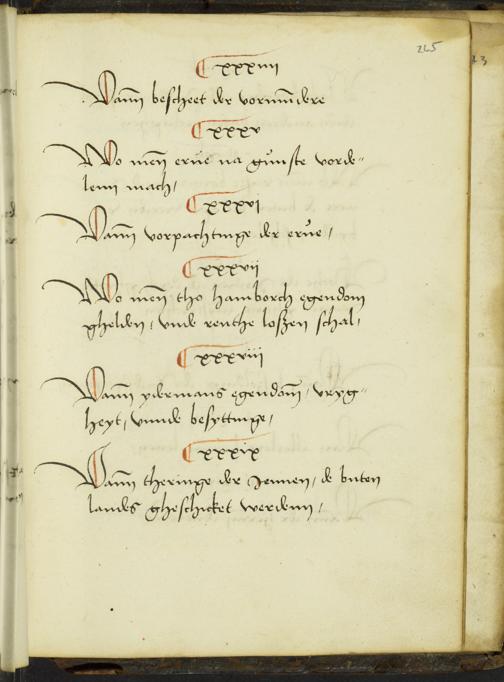 225
xxxiiii
Vann bescheet der vormundere
xxxv
Wo men erue na gunste vorde-
lenn mach,
xxxvi
Vann vorpachtinge der erue,
xxxvii
Wo men tho hamborch egendom
ghelden, unde renthe loszen schal,
xxxviii
Vann ydermans egendom, vryg-
heyt, unnde besyttinge,
xxxix
Vann theringe der Jennen, de buten
landes gheschicket werdenn,